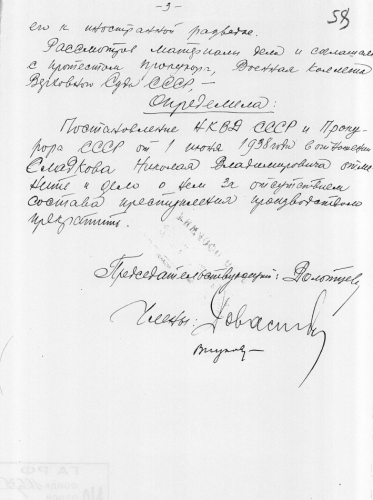 - 3 -
58
его к иностранной разведке.
Рассмотрев материалы дела и соглашаясь
с протестом прокурора, Военная коллегия
Верховного Суда СССР, —
Определила:
Постановление НКВД СССР и Проку-
рора СССР от 1 июня 1938 года в отношении
Сладкова Николая Владимировича отме-
нить и дело о нем за отсутствием
состава преступления производством
прекратить.
Председательствующий:
Члены:
ГАРФ